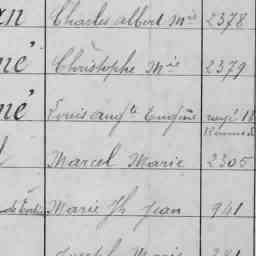 an Charles albert Mie 2378
né Christophe Mie 2379
né Louis augte Eugène rayé 18
Marcel Marie 2305
Marie Jh Jean 941
Joseph Marie